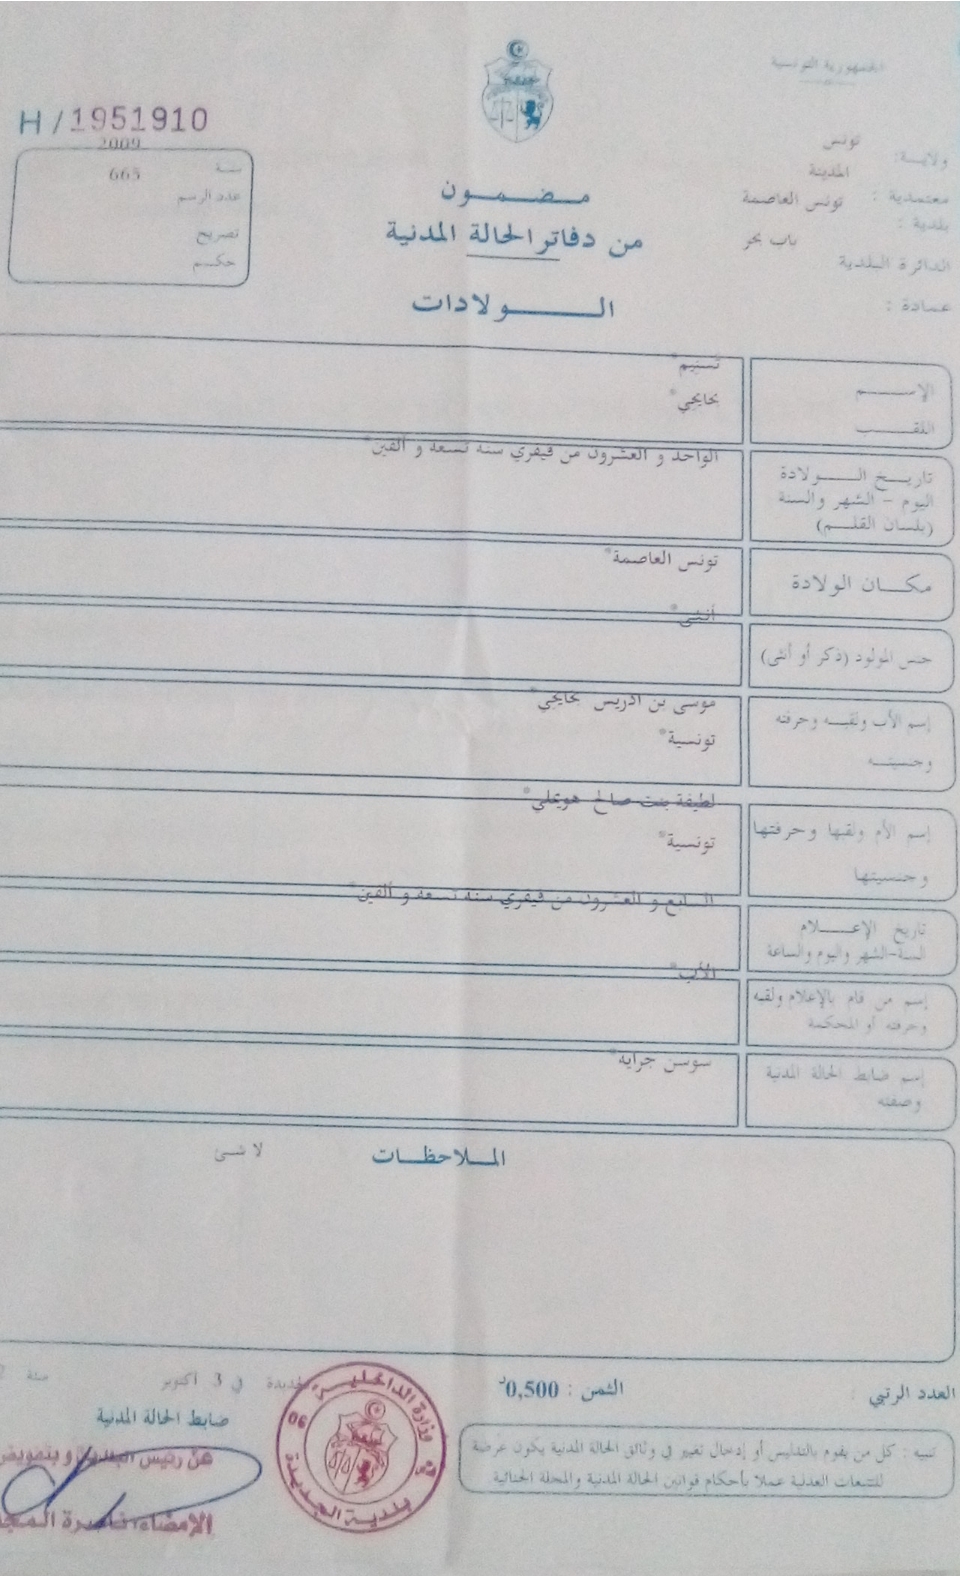 الجمهورية التونسية
H/1951910
ولاية: تونس
معتمدية : المدينة
بلدية : تونس العاصمة
الدائرة البلدية باب بحر
عمادة :
سنة 2009
عدد الرسم 665
تصريح
حكم
مضمون
من دفاتر الحالة المدنية
الولادات
الإسم تسنيم*
اللقب
تاريخ الولادة
اليوم - الشهر والسنة
(بلسان القلم)
الواحد و العشرون من فيفري سنة تسعة و ألفين*
مكان الولادة تونس العاصمة*
جنس المولود (ذكر أو أنثى) أنثى*
إسم الأب ولقبه وحرفته
وجنسيته
موسى بن ادريس
تونسية*
إسم الأم ولقبها وحرفتها
وجنسيتها
لطيفة بنت صالح
تونسية*
تاريخ الإعلام
السنة-الشهر واليوم والساعة
السابع و العشرون من فيفري سنة تسعة و ألفين*
إسم من قام بالإعلام ولقبه
وحرفته أو المحكمة
الأب*
إسم ضابط الحالة المدنية
وصفته
سوسن جراية*
الملاحظات
لا شئ
العدد الرتبي :
الثمن : 0,500د
الجديدة في 3 أكتوبر سنة
ضابط الحالة المدنية
تنبيه : كل من يقوم بالتدليس أو إدخال تغيير في وثائق الحالة المدنية يكون عرضة
للتتبعات العدلية عملا بأحكام قوانين الحالة المدنية والمجلة الجنائية
وزارة الداخلية
بلدية الجديدة
06
عن رئيس البلدية و بتفويض
الإمضاء: ناصرة